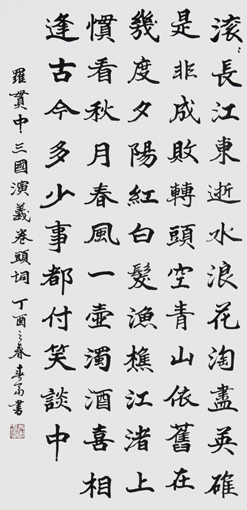 滚〻長江東逝水浪花淘盡英雄
是非成敗轉頭空青山依舊在
幾度夕陽紅白髮漁樵江渚上
慣看秋月春風一壺濁酒喜相
逢古今多少事都付笑談中
羅貫中三國演義卷頭词丁酉之春書